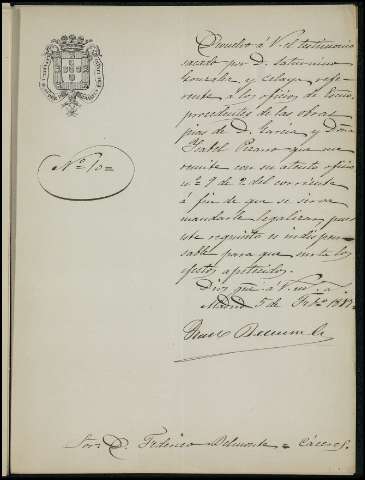 Devuelvo á V. el testimonio
sacado por D. Saturnino
Gonzalez y Celaya refe-
rente á los oficios de
procedentes de las obras
pias de D. García y Doña
Isabel Pizarro que me
remite con su atento oficio
nº 9 de 2 del corriente
á fin de que se sirva
mandarle legalizar, pues
este requisito es indispen-
sable para que surta los
efectos apetecidos.
Dios gue á V. ms. as.
Madrid 5 de
Nº 10
Sor. D. Federico Belmonte = Cáceres.